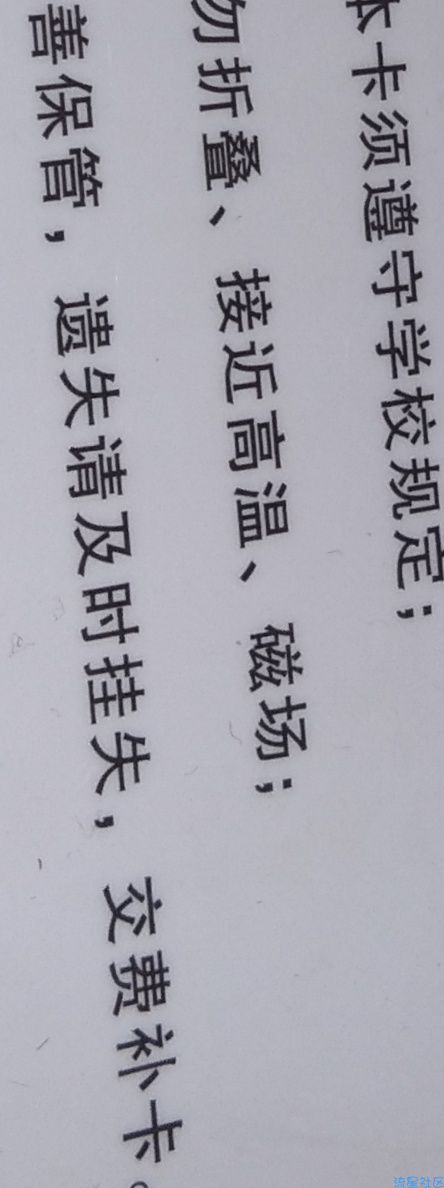 本卡须遵守学校规定；
勿折叠、接近高温、磁场；
善保管，遗失请及时挂失，交费补卡。
流星社区